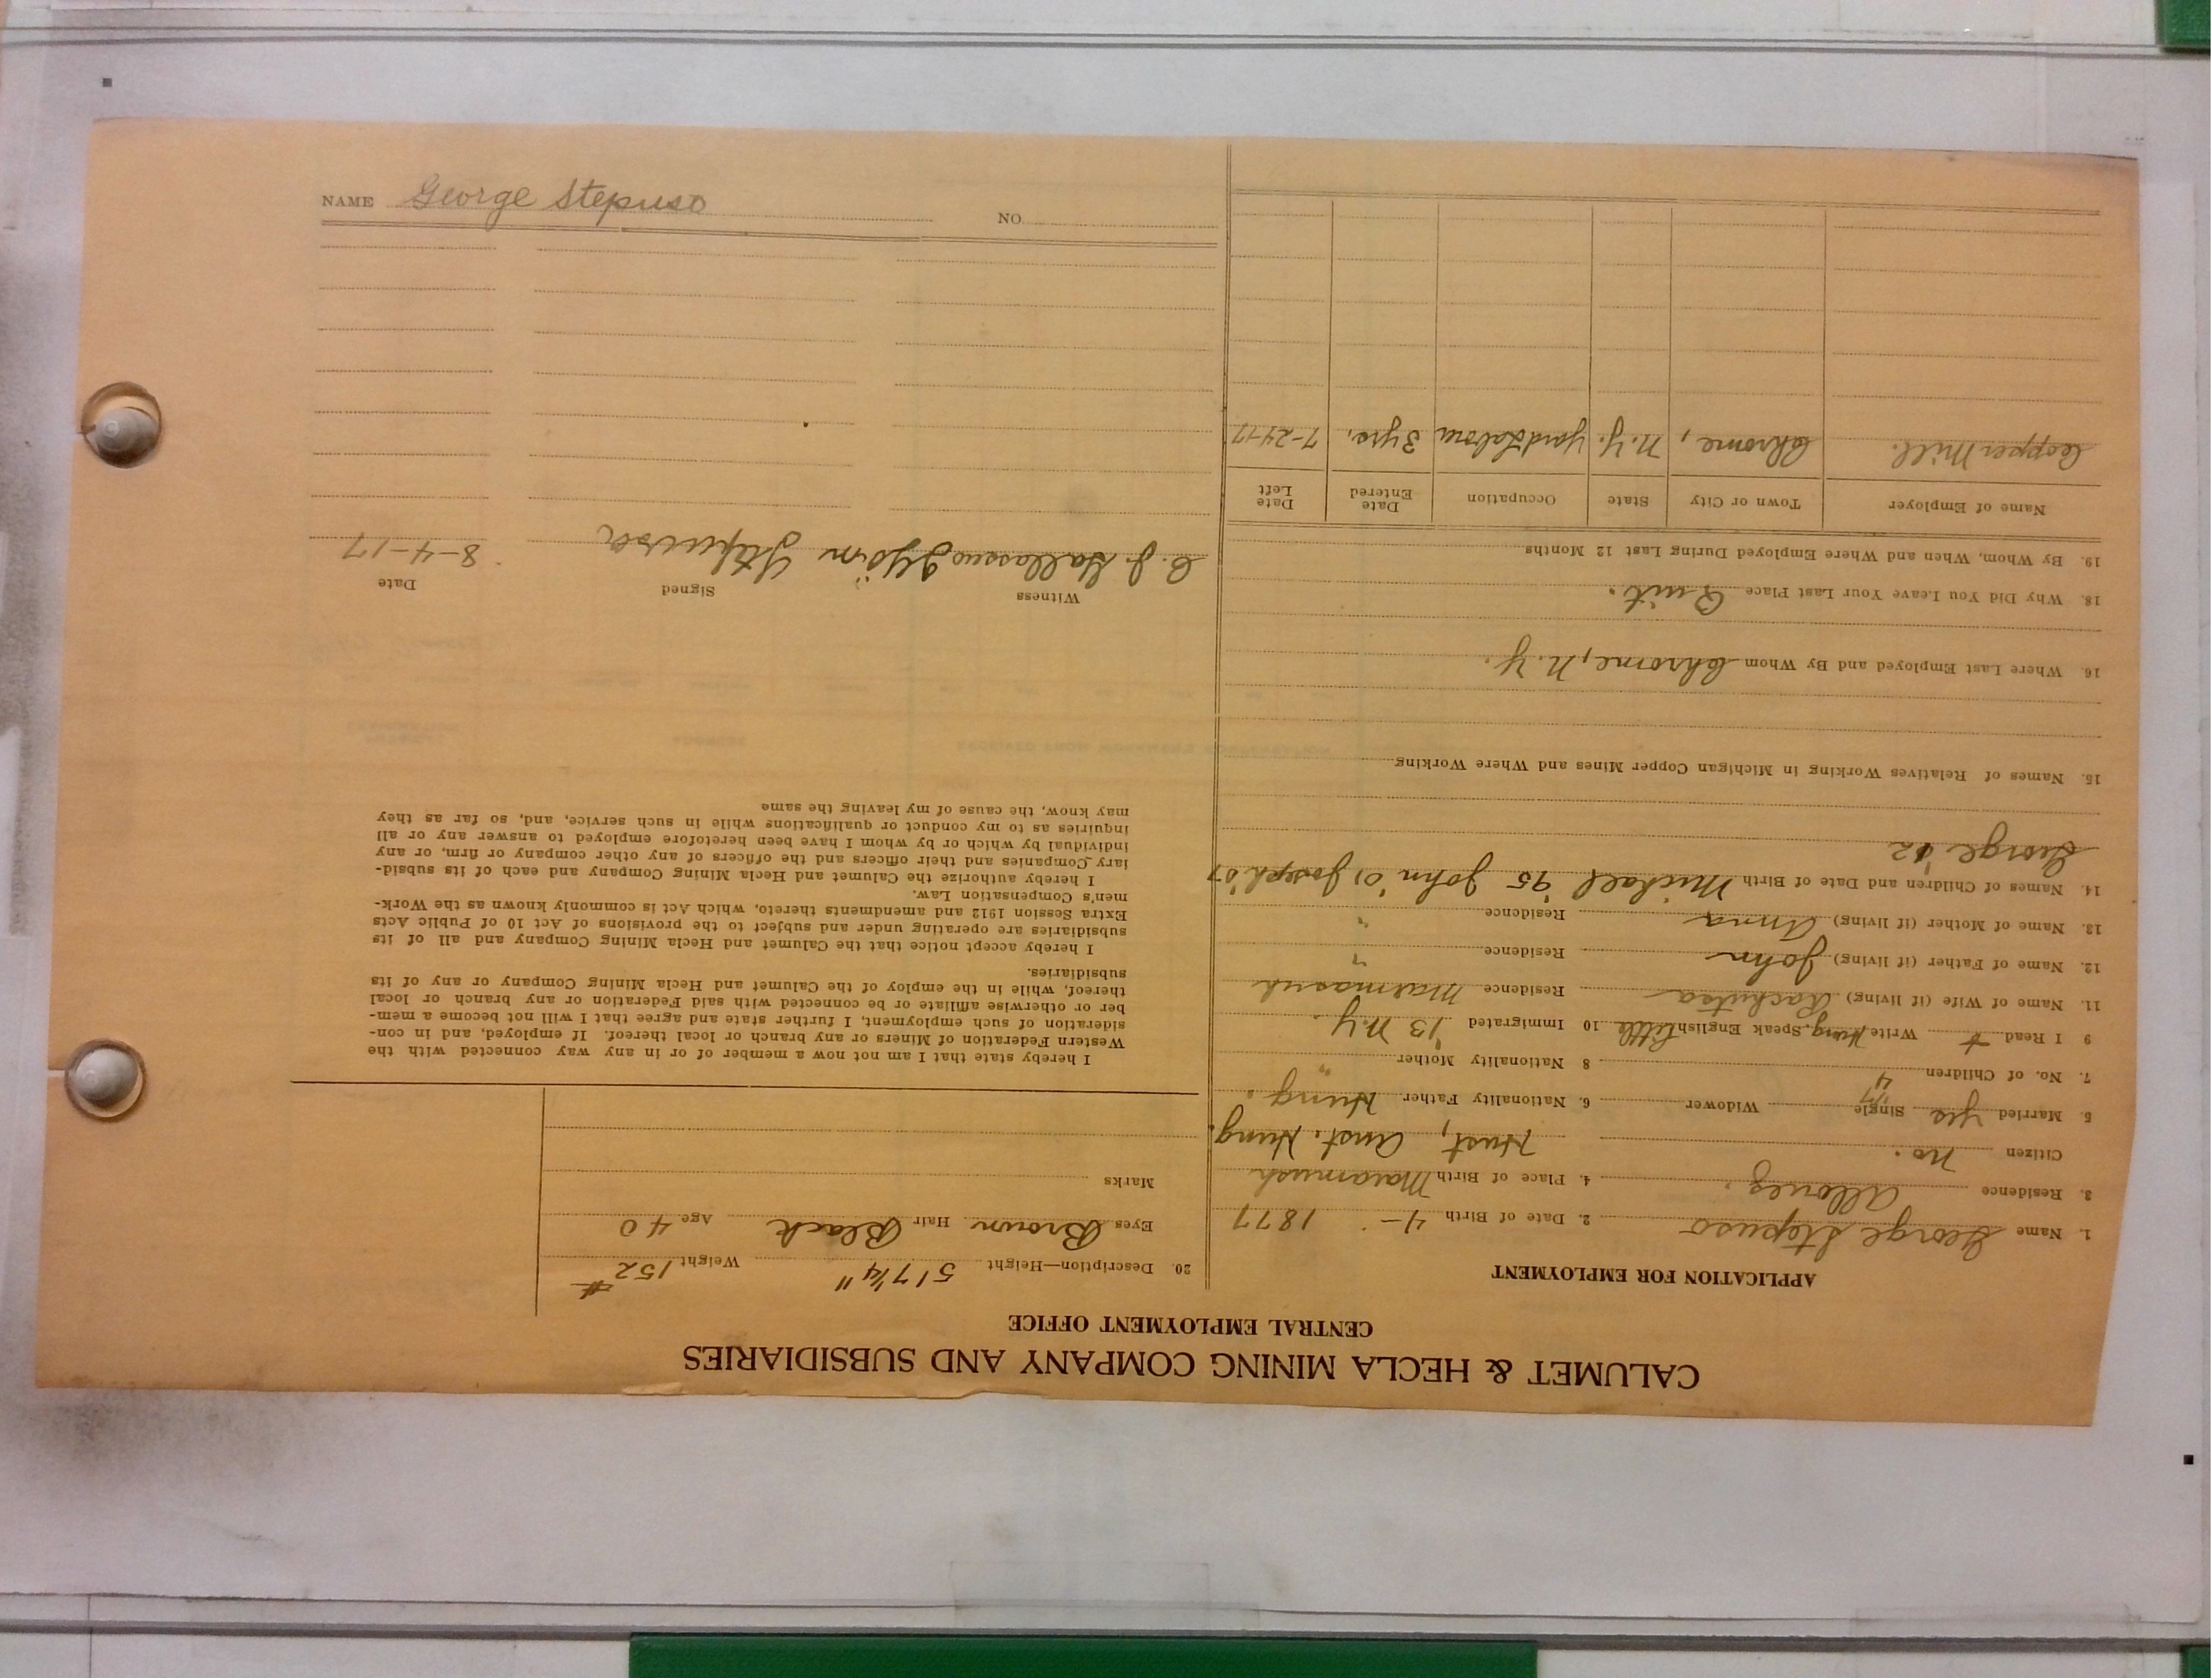 CALUMET & HECLA MINING COMPANY AND SUBSIDIARIES
CENTRAL EMPLOYMENT OFFICE
APPLICATION FOR EMPLOYMENT
1. Name George Stepuso 2. Date of Birth 4- 1877
3. Residence Allouez. 4. Place of Birth
Citizen no. Aust. Hung.
5 Married yes Single Widower 6. Nationality Father Hung.
7. No. of Children 4 8 Nationality Mother "
9 I Read + Write Hung. Speak English Little 10 Immigrated '13 N.Y.
11. Name of Wife (if living) Residence
12. Name of Father (if living) John Residence "
13. Name of Mother (if living) Anna Residence "
14. Names of Children and Date of Birth Michael '95 John '01 Joseph '07
George '12
15. Names of Relatives Working in Michigan Copper Mines and Where Working
16. Where Last Employed and By Whom Chrome, N.Y.
18. Why Did You Leave Your Last Place Quit.
19. By Whom, When and Where Employed During Last 12 Months
Name of Employer Town or City State Occupation Date Entered Date Left
Copper Mill. Chrome, N.Y. Yard Labor 3 yrs. 7-24-17
20. Description—Height 5' 7 1/4" Weight 152 #
Eyes Brown Hair Black Age 40
Marks
I hereby state that I am not now a member of or in any way connected with the
Western Federation of Miners or any branch or local thereof. If employed, and in con-
sideration of such employment, I further state and agree that I will not become a mem-
ber or otherwise affiliate or be connected with said Federation or any branch or local
thereof, while in the employ of the Calumet and Hecla Mining Company or any of its
subsidiaries.
I hereby accept notice that the Calumet and Hecla Mining Company and all of its
subsidiaries are operating under and subject to the provisions of Act 10 of Public Acts
Extra Session 1912 and amendments thereto, which Act is commonly known as the Work-
men's Compensation Law.
I hereby authorize the Calumet and Hecla Mining Company and each of its subsid-
iary Companies and their officers and the officers of any other company or firm, or any
individual by which or by whom I have been heretofore employed to answer any or all
inquiries as to my conduct or qualifications while in such service, and, so far as they
may know, the cause of my leaving the same
Witness Signed Date
C. J. 8-4-17
NAME George Stepuso NO.